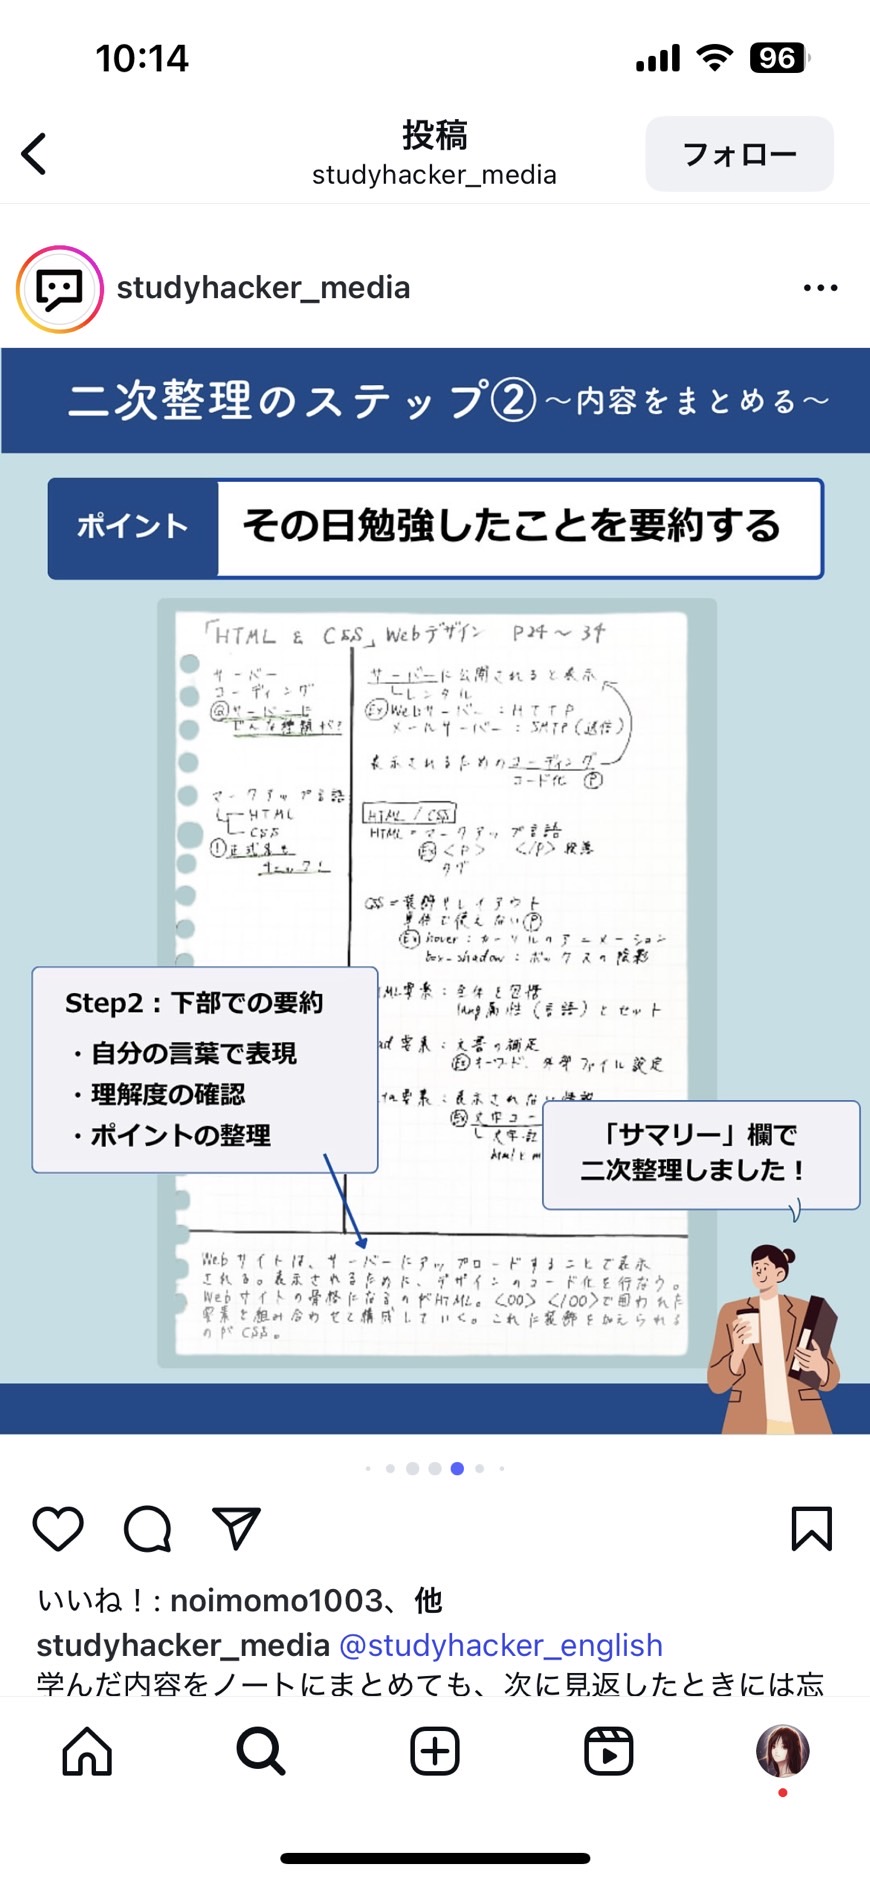 10:14
96
投稿
studyhacker_media
フォロー
studyhacker_media
二次整理のステップ② 〜内容をまとめる〜
ポイント
その日勉強したことを要約する
「HTML & CSS」Webデザイン P24〜34
サーバー
コーディング
@サーバーに
どんな種類が?
マークアップ言語
HTML
CSS
①正式名を
チェック!
サーバーに公開されると表示
レンタル
Ex Webサーバー:HTTP
メールサーバー:SMTP(送信)
表示されるためのコーディング
コード化 P
HTML / CSS
HTML=マークアップ言語
Ex <P> </P> 段落
タグ
CSS=装飾やレイアウト
単体で使えない P
Ex hover:カーソルのアニメーション
box-shadow:ボックスの陰影
ML要素:全体を包括
lang属性(言語)とセット
ad要素:文書の補足
Ex キーワード、外部ファイル設定
ta要素:表示されない情報
Ex 文字コー
htmlとm
Step2:下部での要約
・自分の言葉で表現
・理解度の確認
・ポイントの整理
「サマリー」欄で
二次整理しました!
Webサイトは、サーバーにアップロードすることで表示
される。表示されるために、デザインのコード化を行なう。
Webサイトの骨格になるのがHTML。<〇〇> </〇〇>で囲われた
要素を組み合わせて構成していく。これに装飾を加えられる
のがCSS。
いいね!: noimomo1003、他
studyhacker_media @studyhacker_english
学んだ内容をノートにまとめても、次に見返したときには忘